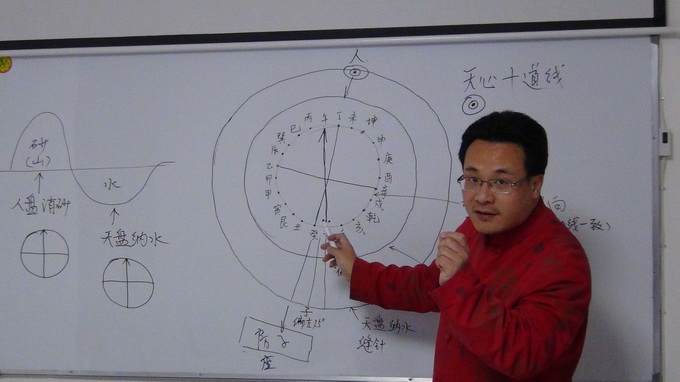 人
天心十道线
丙
午
丁
未
坤
巳
巽
申
辰
庚
乙
酉
卯
辛
甲
戌
寅
乾
艮
亥
丑
癸
砂
(山)
水
人盘消砂
天盘纳水
向
线一致)
子
偏左25°
房子
座
天盘纳水
缝针